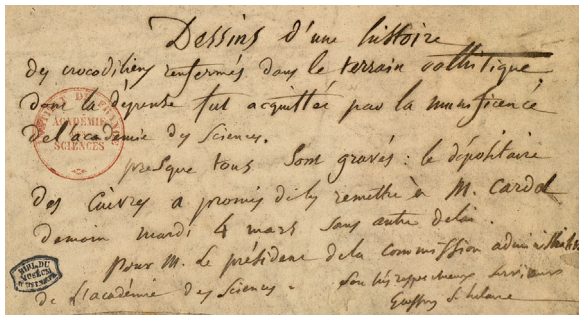 Dessins d'une histoire
des crocodiliens renfermés dans le terrain oolhitique,
dont la dépense fut acquittée par la munificence
de l'académie des Sciences.
presque tous sont gravés : le dépositaire
des Cuivres a promis de les remettre à M. Cardot
demain mardi 4 mars sans autre délai.
pour M. le président de la commission administrative
de L'académie des Sciences. Son très respectueux serviteur
Geoffroy St hilaire
INSTITUT DE FRANCE
ACADÉMIE
DES
SCIENCES
BIBL. DU
MUSÉUM